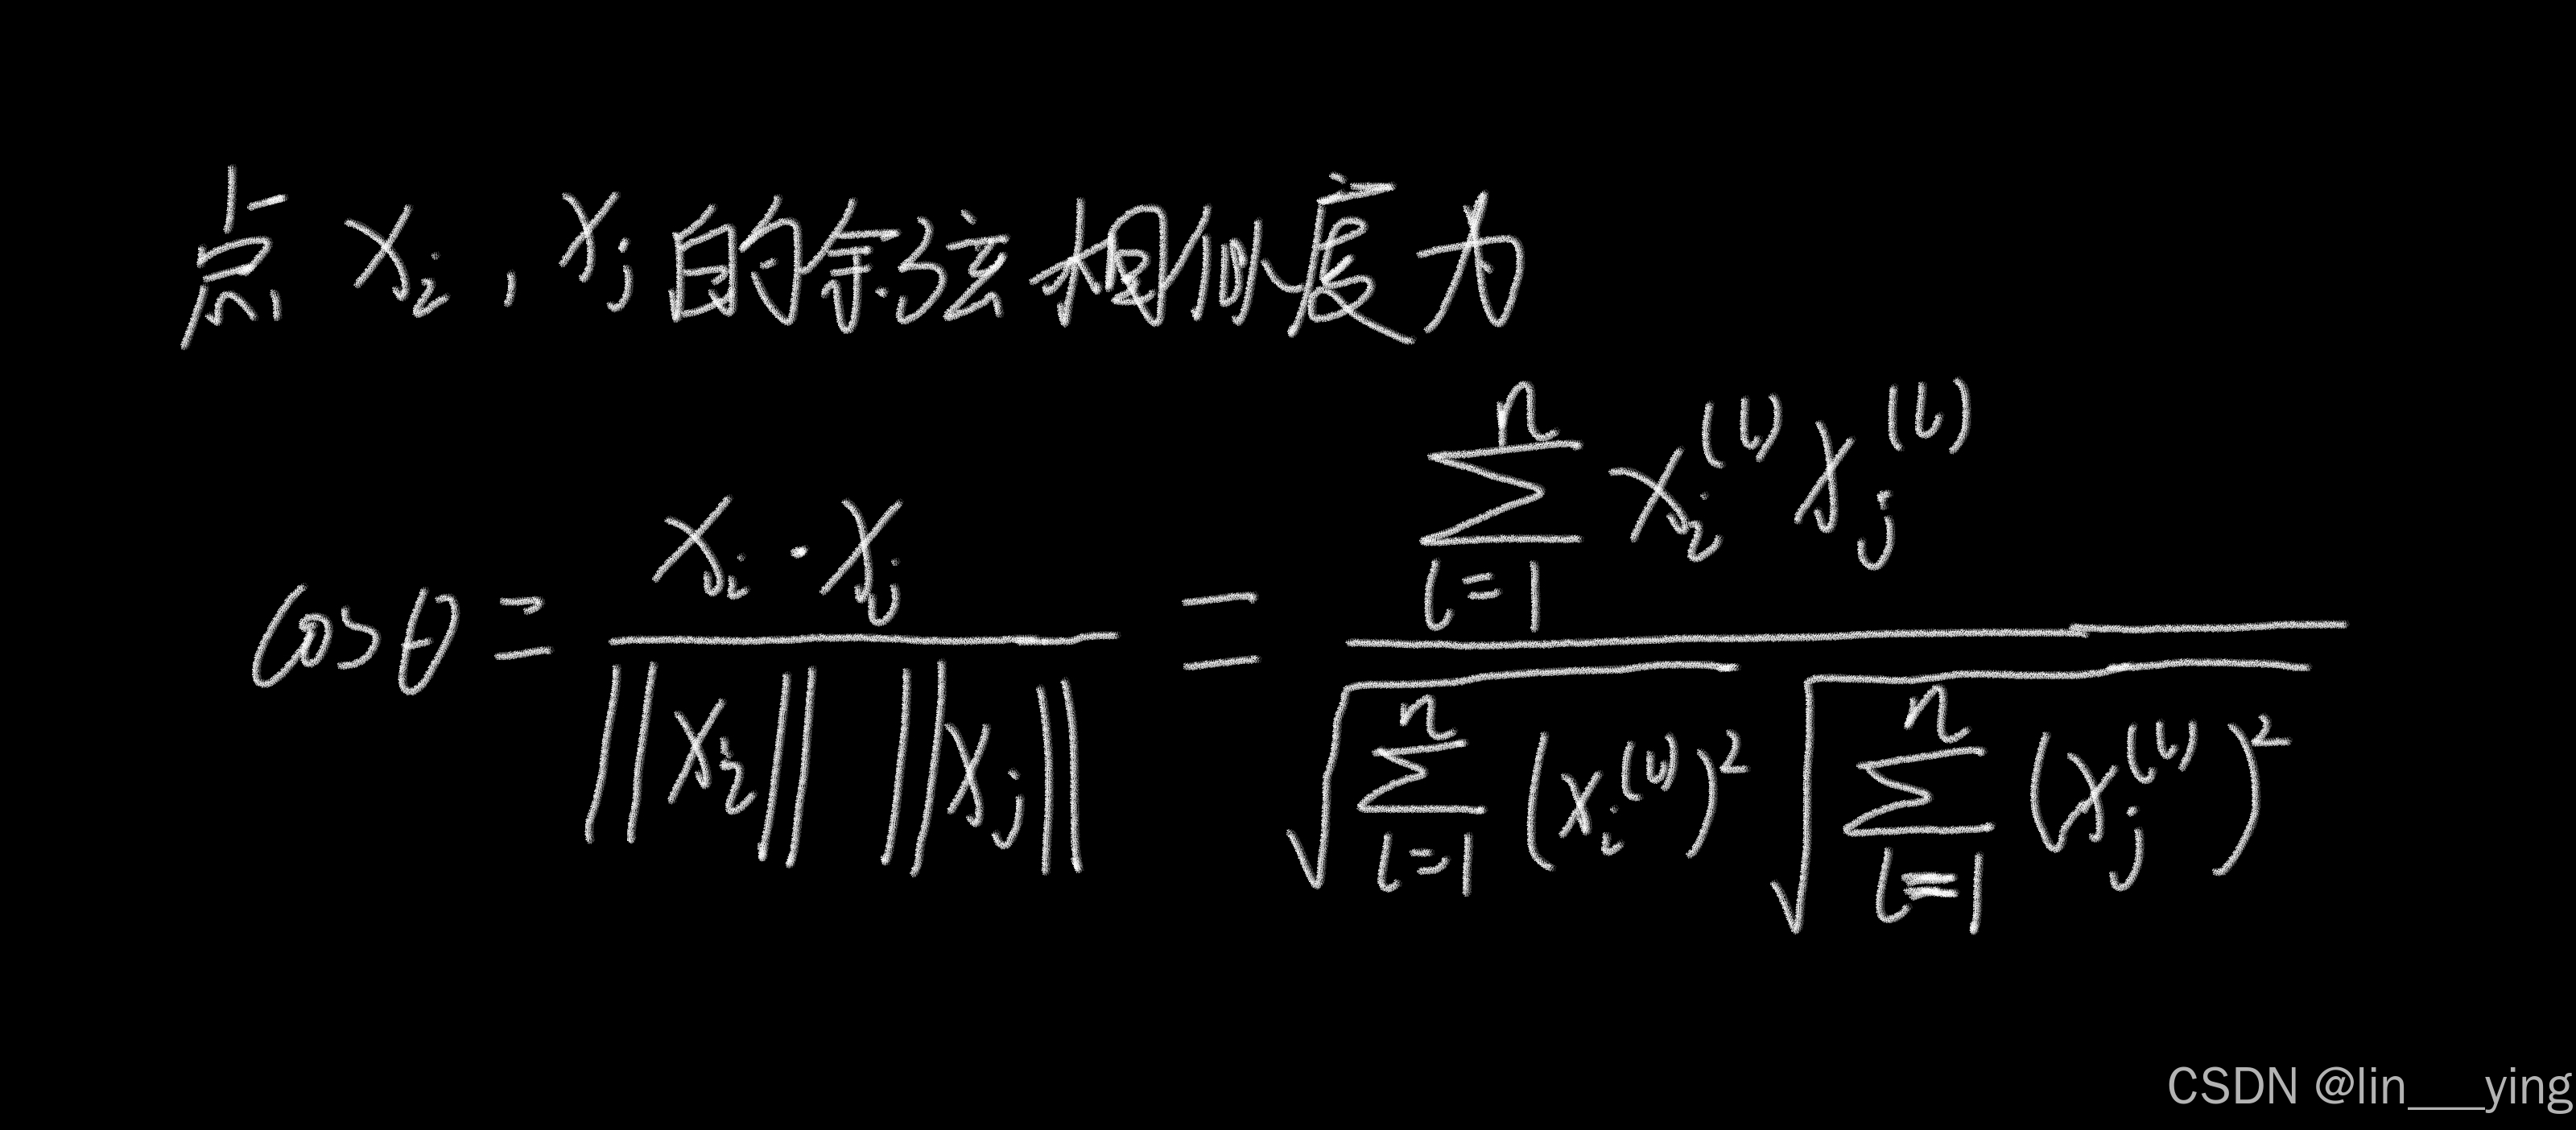 点 x_i, x_j 的余弦相似度为
cosθ = \frac{x_i · x_j}{||x_i|| ||x_j||} = \frac{\sum_{l=1}^{n} x_i^{(l)} x_j^{(l)}}{\sqrt{\sum_{l=1}^{n} (x_i^{(l)})^2} \sqrt{\sum_{l=1}^{n} (x_j^{(l)})^2}}
CSDN @lin___ying